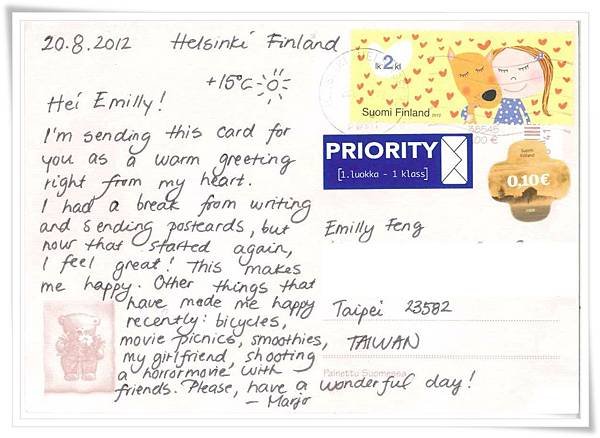 20.8.2012 Helsinki Finland
+15°C
Hei Emilly!
I'm sending this card for
you as a warm greeting
right from my heart.
I had a break from writing
and sending postcards, but
now that started again,
I feel great! This makes
me happy. Other things that
have made me happy
recently: bicycles,
movie picnics, smoothies,
my girlfriend, shooting
a horrormovie with
friends. Please, have a wonderful day!
– Marjo
lk 2 kl
Suomi Finland 2012
PRIORITY
[1.luokka - 1 klass]
Suomi
Finland
0.10€
Emilly Feng
Taipei 23582
TAIWAN
Painettu Suomessa